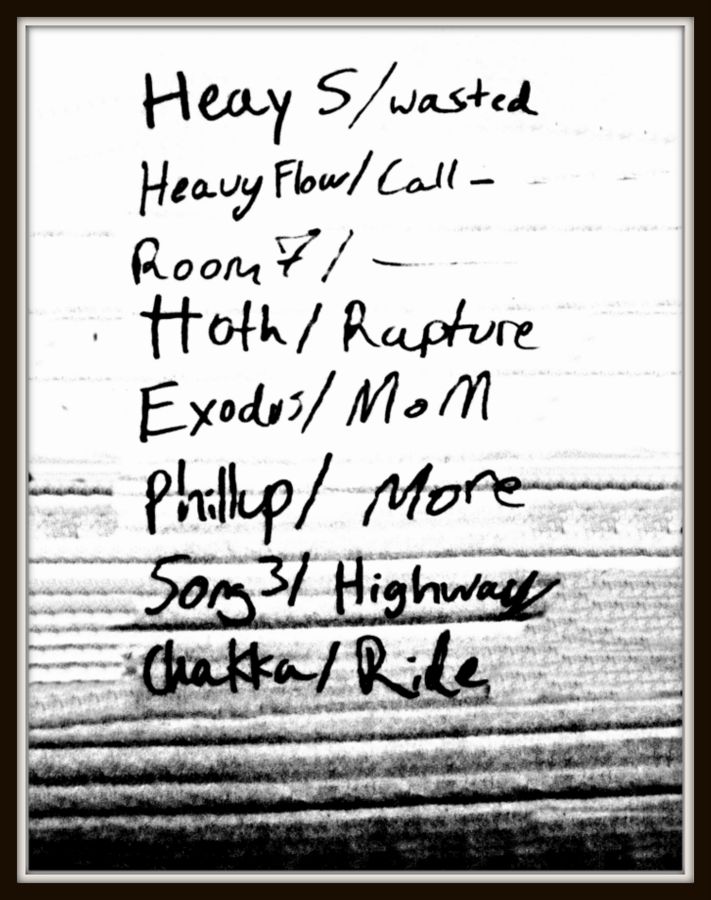 Heay S/wasted
Heavy Flow/Call -
Room 7/ —
Hoth/Rapture
Exodus/MoM
Phillup/More
Song 3/Highway
Chakka/Ride